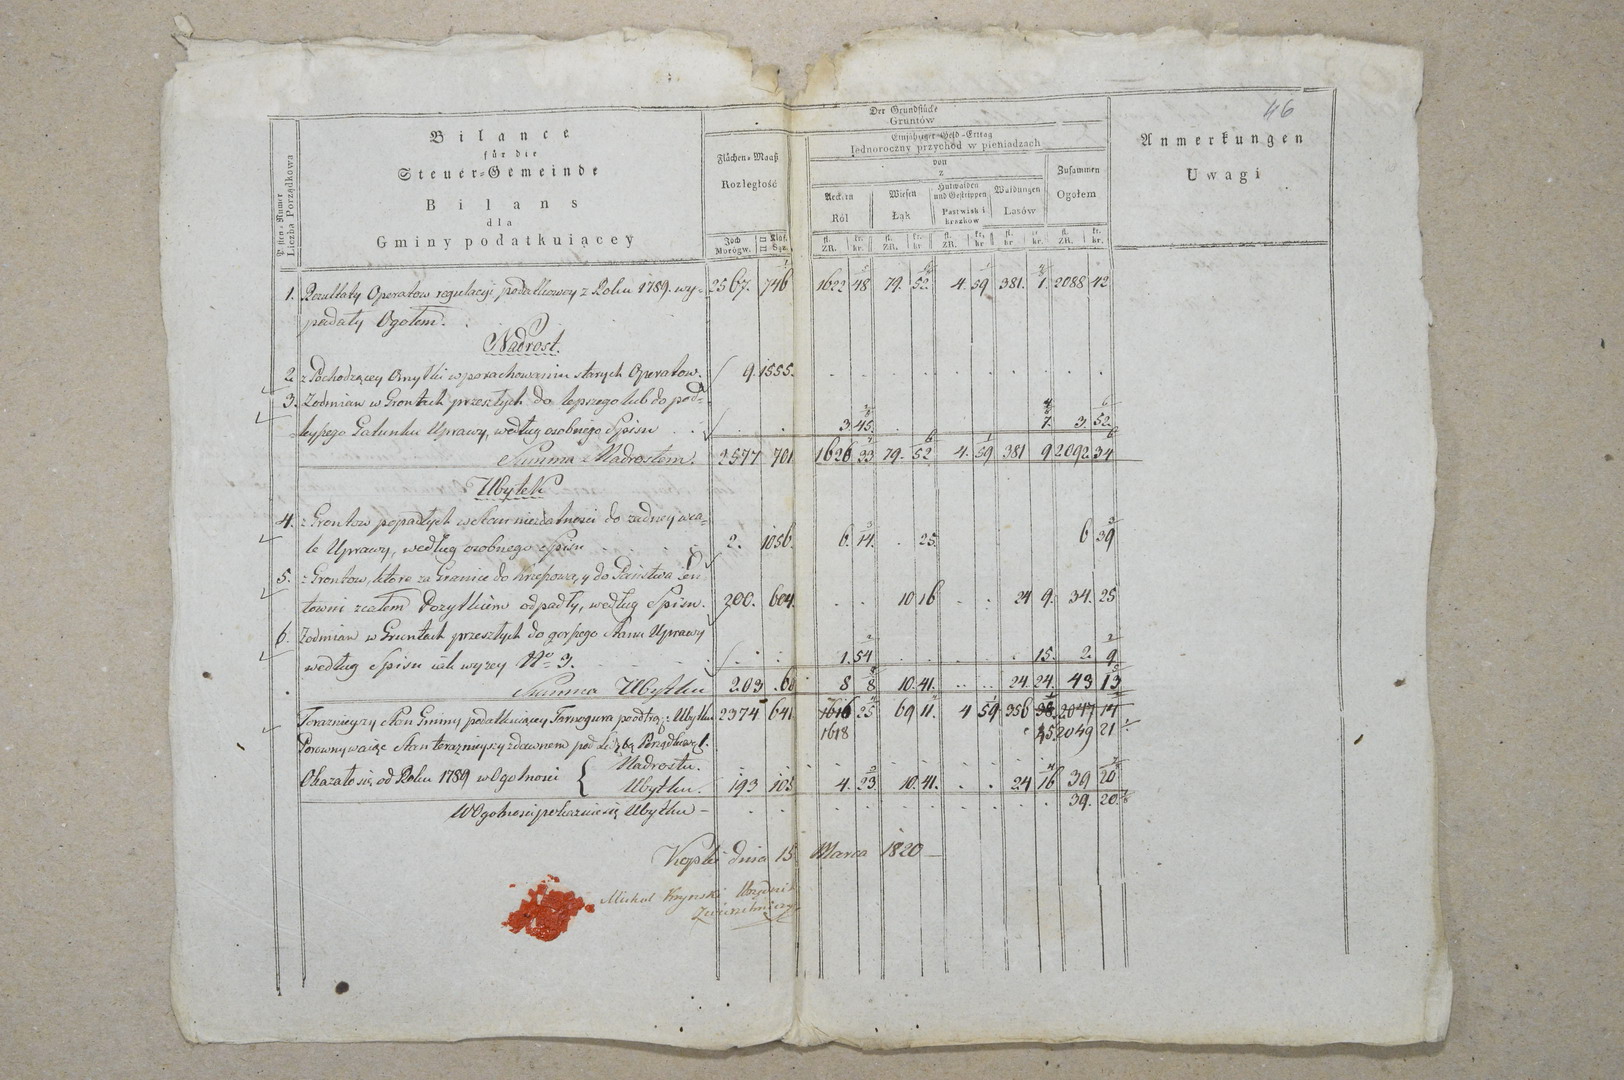 46
Bilance
für die
Steuer-Gemeinde
Bilans
dla
Gminy podatkuiącey
Posten-Numer
Liczba Porządkowa
Der Grundstücke
Gruntów
Flächen-Maaß
Rozległość
Joch
Morógw.
□ Klaf.
□ Sąż.
Einjähriger Geld-Ertrag
Iednoroczny przychod w pieniadzach
von
z
Aeckern
Ról
Wiesen
Łąk
Hutweiden
und Gestrippen
Pastwisk i
krzaków
Waldungen
Lasów
Zusammen
Ogołem
fl.
ZR.
kr.
kr.
fl.
ZR.
kr.
kr.
fl.
ZR.
kr.
kr.
fl.
ZR.
kr.
kr.
fl.
ZR.
kr.
kr.
Anmerkungen
Uwagi
1. Rezultaty Operatow regulacyi podatkowey z Roku 1789. wy- 2567. 746 1622 48 79. 52 4. 59 381. 1. 2088 42
padały Ogołem.
Nadrost.
2. z Pochodzącey Omyłki w porachowaniu starych Operatow. 9. 1555.
3. Zodmian w Grontach przeszłych do lepszego lub do pod-
leyszego Gatunku Uprawy, według osobnego Spisu 3. 45. 7. 3. 52.
Summa z Nadrostem. 2577 701 1626 33 79. 52 4. 59 381 9 2092 34
Ubytek
4. z Grontow popadłych w Stan niezdatności do żadney wca-
le Uprawy, według osobnego Spisu 2. 1056. 6. 14. 25 6 39
5. z Grontow, które za Granice do
z całem Pozytkiem odpadły, według Spisu. 200. 604. 10 16 24 9. 34. 25
6. Zodmian w Gruntach przeszłych do gorszego Stanu Uprawy
według Spisu iak wyzey No 3. 1. 54 15. 2. 9
Summa Ubytku 203 60 8 8 10. 41. 24 24. 43 13
Teraznieyszy Stan Gminy podatkuiącey Tarnogura po odtrą: Ubytku 2374 641 1616 25 69 11. 4 59 356 2047 14
1618 45 2049 21
Porownywaiąc Stan teraznieyszy z dawnem pod Liczbą Porządkową 1.
Okazało się od Roku 1789 w Ogolnosci { Nadrostu.
Ubytku. 193 105 4. 23 10. 41. 24 16 39 20
W Ogolności pokazuie się Ubytku 39. 20
Kopki dnia 15 Marca 1820
Michał Urzędnik
Zwierzchniczy